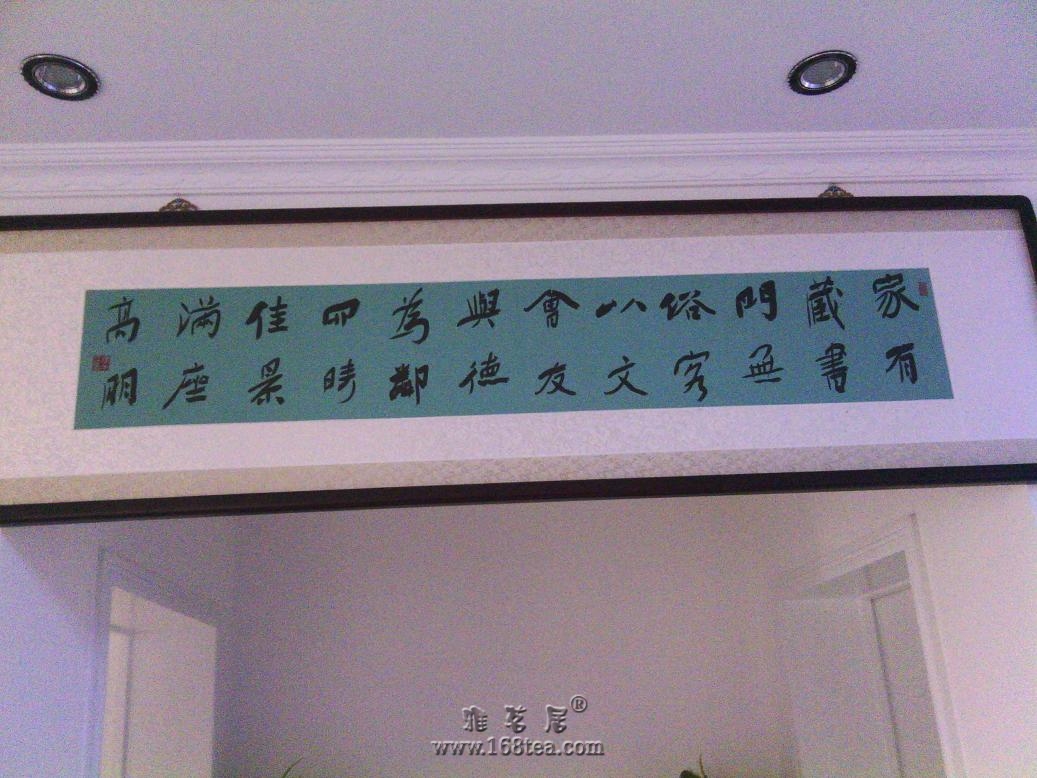 家有
藏書
門無
俗客
以文
會友
與德
為鄰
四時
佳景
滿座
高朋
雅茗居®
www.168tea.com